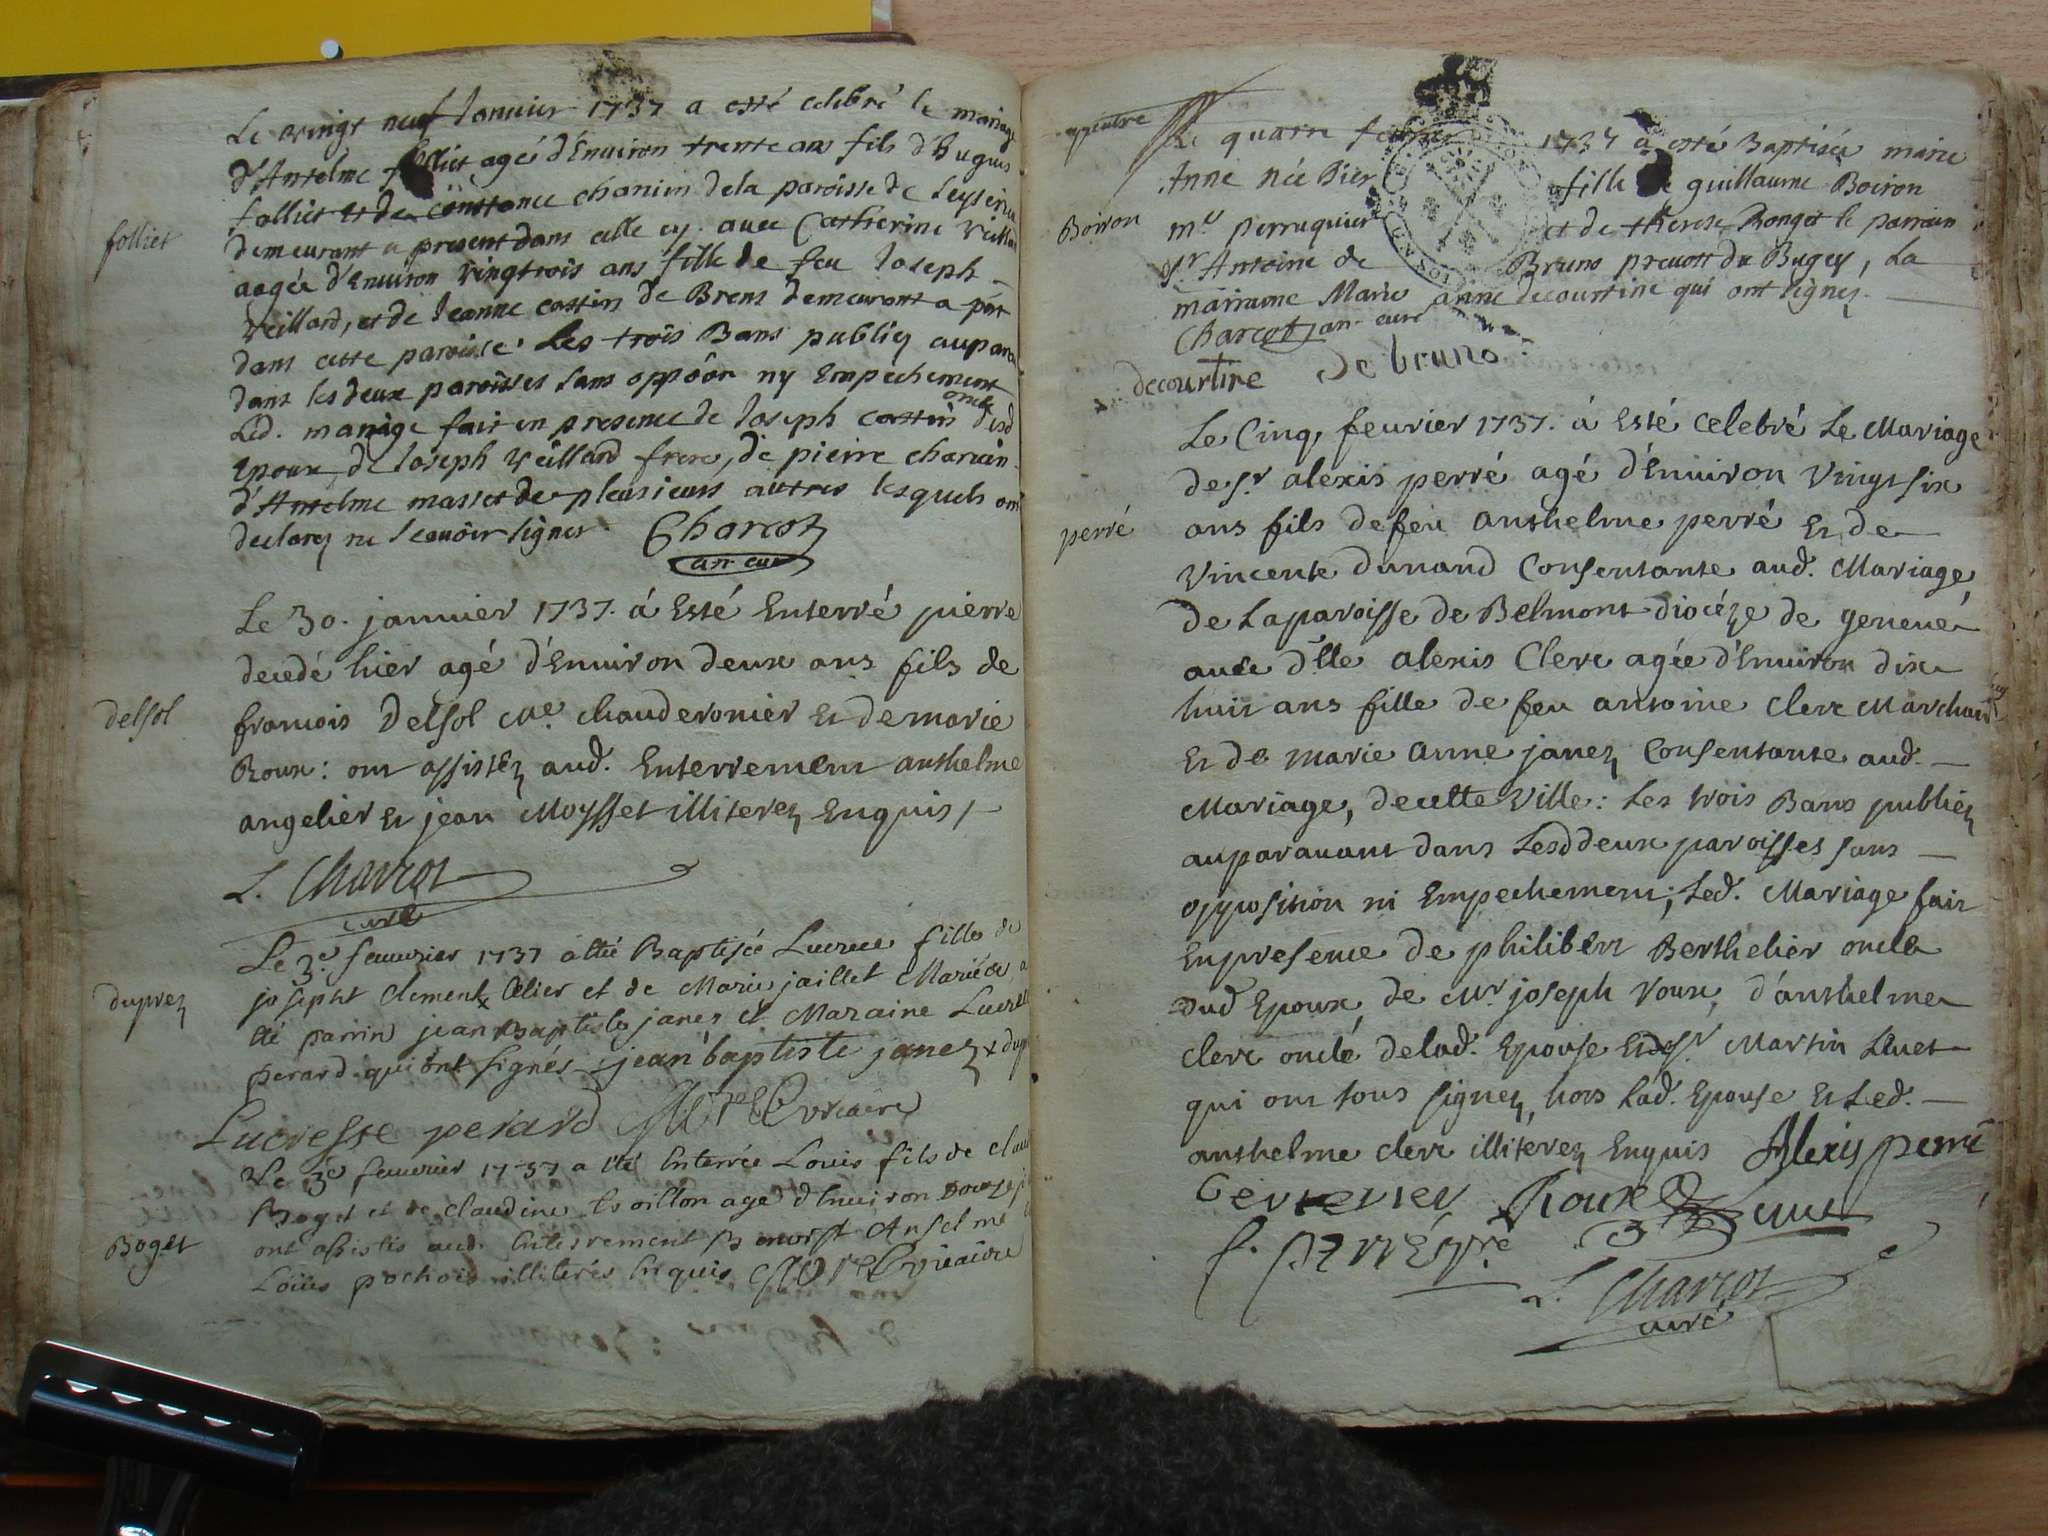 Le vingt neuf Janvier 1737 a esté celebré le mariage
d'Antelme folliet agé d'Environ trente ans fils d'Hugues
folliet et de constance chanien dela paroisse de
folliet
demeurant a present dans celle cy. avec Catherine Veillard
aagée d'Environ vingtrois ans fille de feu Joseph
Veillard, et de Jeanne cottin de Brens demeurant a pnt
dans cette paroisse. Les trois Bans publiez aupara
dans les deux paroisses sans oppôôn ny Empechement
Led. mariage fait en presence de Joseph cottin oncle dud
Epoux de Joseph veillard frere, de pierre
d'Antelme masset de plusieurs autres lesquels ont
declarez ne scavoir signer Charcot
an. curé
Le 30. janvier 1737. á Esté Enterré pierre
decedé hier agé d'Environ deux ans fils de
delsol
francois Delsol me. chauderonier et de marie
Roux: ont assistez aud. Enterrement anthelme
angelier et jean Moysset illiterez Enquis,
L. Charcot
curé
Le 3e feuvrier 1737 a été Baptisée Lucrece fille de
duprez
josepht Clement x Celier et de Marie jaillet Mariés a
été parrin jean Baptiste janez et Maraine Lucrece
perard qui ont signés jean baptiste janez x
Lucresse perard vicaire
Le 3e feuvrier 1737 a été Enterrée Louis fils de
Boget et de Claudine agé d'Environ
Boget
ont assistés aud. Enterrement Anselme
Louis pochois illiterés Enquis vicaire
Le quatre 1737 a esté Baptisée marie
Anne née hier fille de guillaume Boiron
Boiron
me perruquier et de therese Ronget le parrain
sr Antoine de Bruno prevost du Bugey, La
marraine Marie anne decourtine qui ont signez.
Charcot an. curé
decourtine de bruno
Le Cinq, feuvrier 1737. á Esté Celebré Le Mariage
de sr alexis perré agé d'Environ vingt six
perré
ans fils de feu anthelme perré et de
vincente dunand Consentante aud. Mariage,
de La paroisse de Belmont diocéze de geneve
avec dlle alexis Clerc agée d'Environ dix
huit ans fille de feu antoine clerc Marchand
et de marie anne janez Consentante aud.
Mariage, de cette Ville: Les trois Bans publiez
auparavant dans Lesd deux paroisses sans
opposition ni Empechement; Led. Mariage fait
En presence de philibert Berthelier oncle
dud Epoux, de Mr joseph roux, d'anthelme
clerc oncle de lad. Epouse et de sr Martin Luet
qui ont tous signez, hors Lad. Epouse et Led.
anthelme clerc illiterez Enquis Alexis perré
Roux
L. Charcot
curé